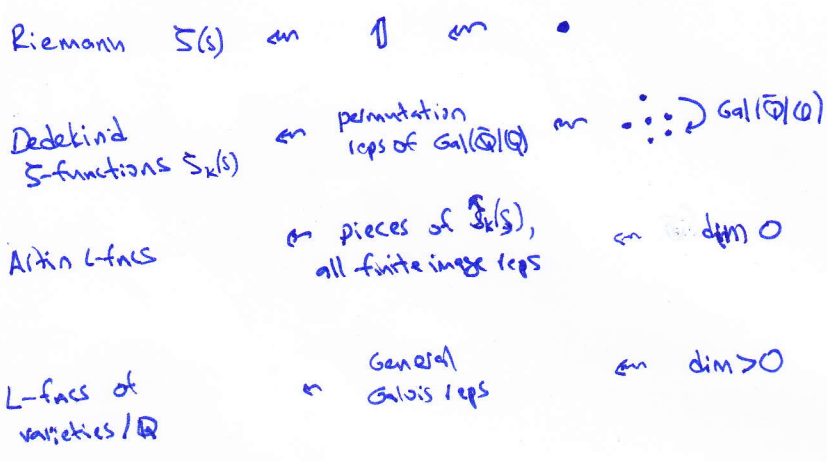 Riemann ζ(s) ⇜ 𝟙 ⇜ •
Dedekind ζ-functions ζ_K(s) ⇜ permutation reps of Gal(Q̄|Q) ⇜ Gal(Q̄|Q)
Artin L-fncs ⇜ pieces of ζ_K(s), all finite image reps ⇜ dim 0
L-fncs of varieties/Q ⇜ General Galois reps ⇜ dim>0